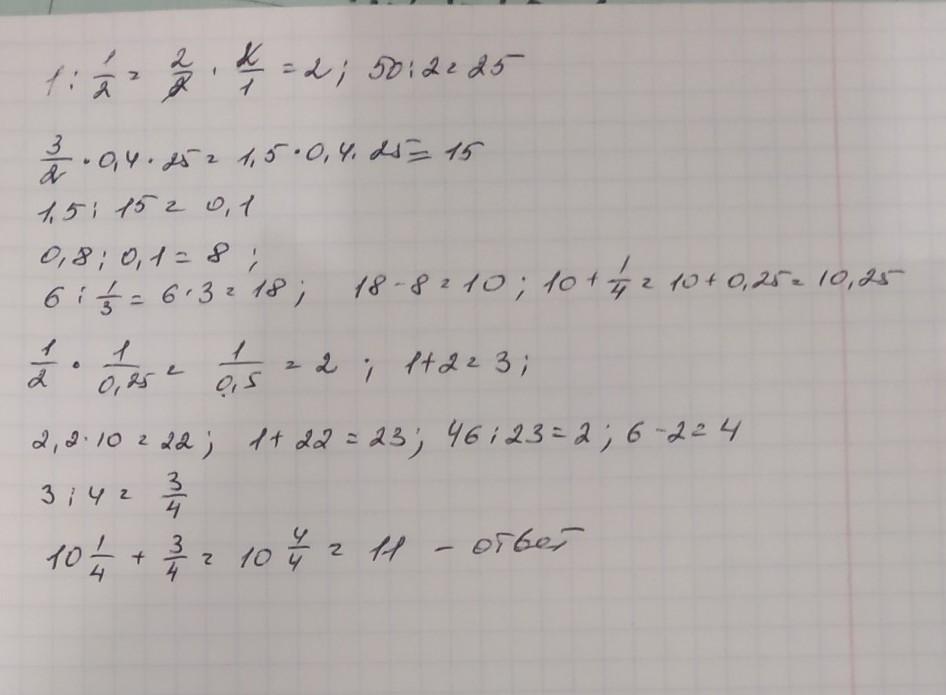 1 : 1/2 = 2/2 · 2/1 = 2; 50 : 2 = 25
3/2 · 0,4 · 25 = 1,5 · 0,4 · 25 = 15
1,5 : 15 = 0,1
0,8 : 0,1 = 8 ;
6 : 1/3 = 6 · 3 = 18 ; 18 - 8 = 10 ; 10 + 1/4 = 10 + 0,25 = 10,25
1/2 · 1/0,25 = 1/0,5 = 2 ; 1 + 2 = 3 ;
2,2 · 10 = 22 ; 1 + 22 = 23 ; 46 : 23 = 2 ; 6 - 2 = 4
3 : 4 = 3/4
10 1/4 + 3/4 = 10 4/4 = 11 - ответ